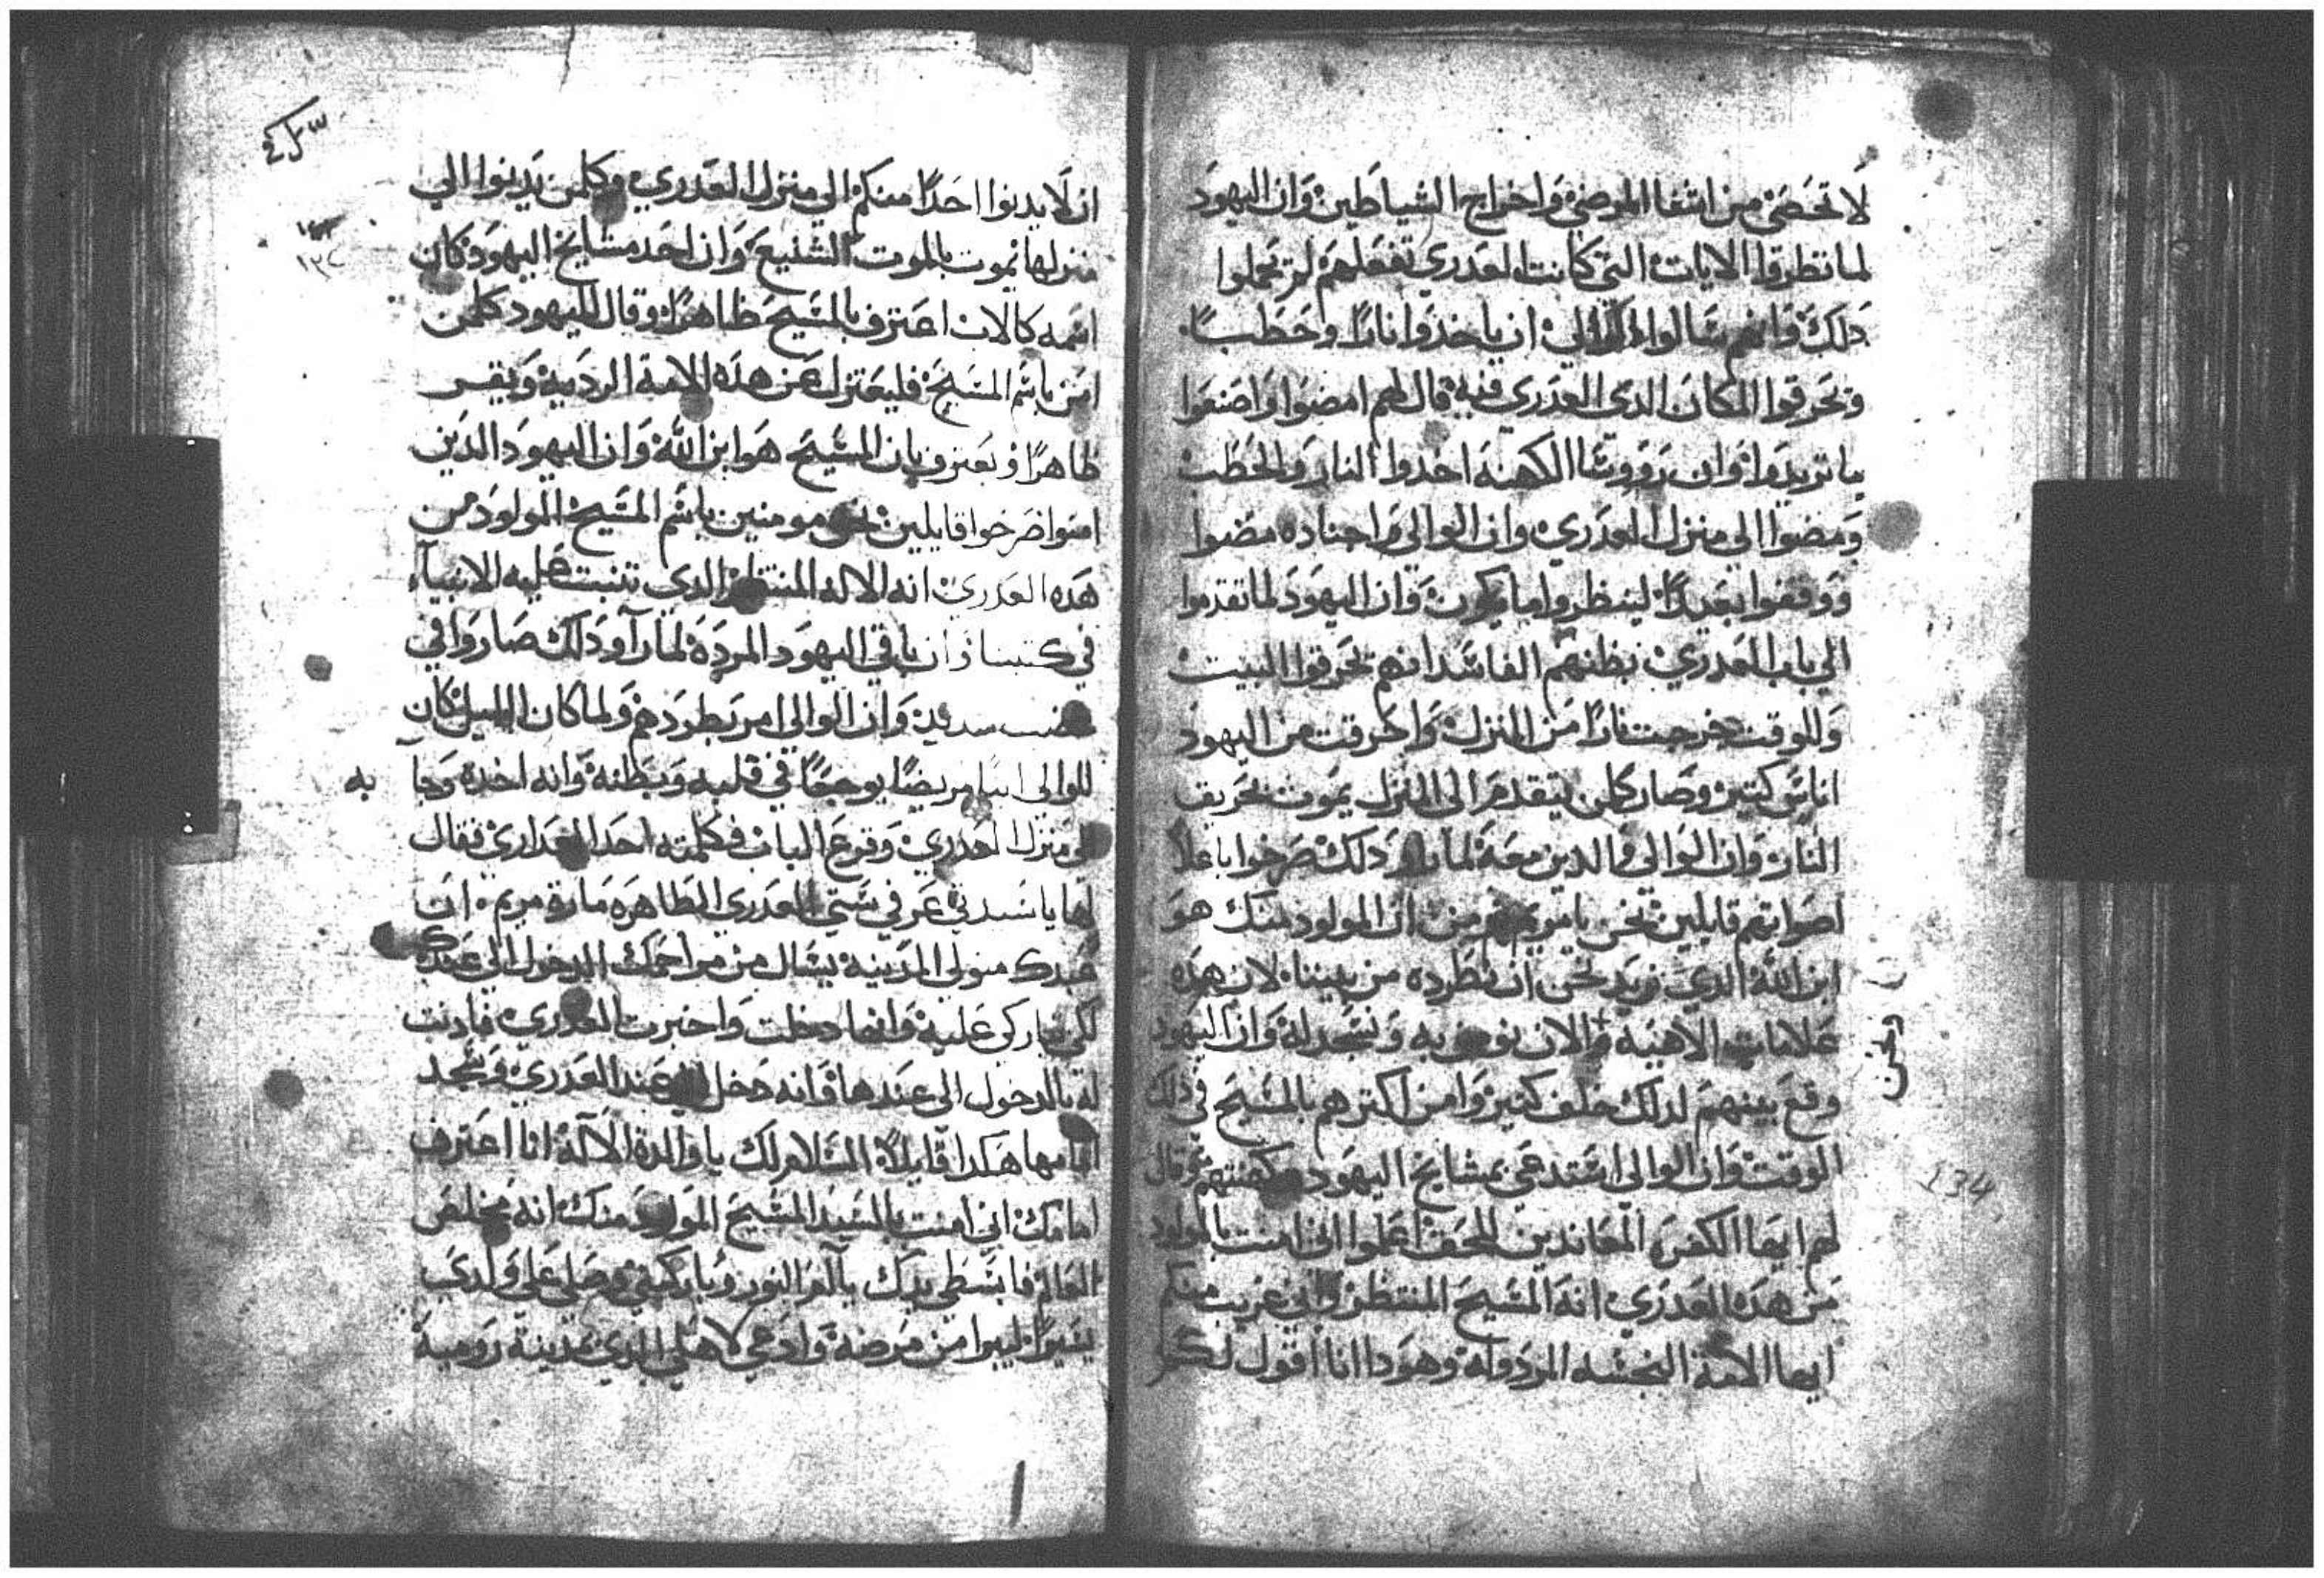 لا تحصى من اشفا المرضى واخراج الشياطين وان اليهود
لما نظروا الايات التي كانت العدرى تفعلهم لم تحملوا
دلك وانهم سالوا الوالي ان ياخدوا نارا وحطبا
وتحرقوا المكان الدى العدرى فيه قال لهم امضوا واصنعوا
ما تريدوا وان رووسا الكهنه اخدوا النار والحطب
ومضوا الي منزل العدري وان الوالي واجناده مضوا
ووقفوا بعيدا لينظروا ما يكون وان اليهود لما تقدموا
الي باب العدري بظنهم الفاسد انهم تحرقوا البيت
وللوقت خرجت نارا من المنزل واحرقت من اليهود
اناس كتير وصار كلمن يتقدم الى المنزل يموت بحريق
النار وان الوالى والدين معه لما راو دلك صرخوا باعلا
اصواتهم قايلين نحن يا مريم نومن ان المولود منك هو
ابن الله الدي نريد نحن ان نطرده من بيننا لان هده
علامات الاهيه والان نومن به ونسجد له وان اليهود
وقع بينهم لدلك خلف كتير وامن اكترهم بالمسيح في دلك
الوقت وان الوالي استدعى بمشايخ اليهود وكهنتهم وقال
لهم ايها الكفره المعاندين للحق اعلموا اني امنت بالمولود
من هده العدري انه المسيح المنتظر واني غريب منكم
ايها الامة النجسه المردوله وهودا انا اقول لكم
ونحن
134
ان لا يدنوا احدا منكم الي منزل العدري وكلمن يدنوا الي
منزلها يموت بالموت الشنيع وان احد مشايخ اليهود كان
اسمه كالاب اعترف بالمسيح ظاهرا وقال لليهود كلمن
امن باسم المسيح فليعتزل عن هده الامة الرديه ويقر
ظاهرا ويعترف بان المسيح هو ابن الله وان اليهود الدين
امنوا صرخوا قايلين نحن مومنين باسم المسيح المولود من
هده العدرى انه الاله المنتظر الدى تنبت عليه الانبياء
في كتبنا وان باقي اليهود المرده لما راو دلك صاروا في
غضب شديد وان الوالى امر بطردهم ولما كان الليل كان
للوالى ابنا مريضا يوجعا في قلبه وبطنه وانه اخده وجا به
الى منزل العدري وقرع الباب فكلمته احد العداري فقال
لها يا سيدتي عرفي ستي العدري الطاهره مارة مريم ان
عبدك متولي المدينه يسال من مراحمك الدخول الي عندك
لكي تباركي عليه وانها دخلت واخبرت العدري فادنت
له بالدخول الى عندها وانه دخل الى عند العدري وسجد
امامها هكدا قايلا السلام لك يا والدة الآله انا اعترف
امامك اني امنت بالسيد المسيح المولود منك انه مخلص
العالم فابسطى يدك يا ام النور وباركيني وصلي على ولدى
يسيرا ليبرا من مرضه وادعي لاهلي الدي بمدينة رومية
١٣٤